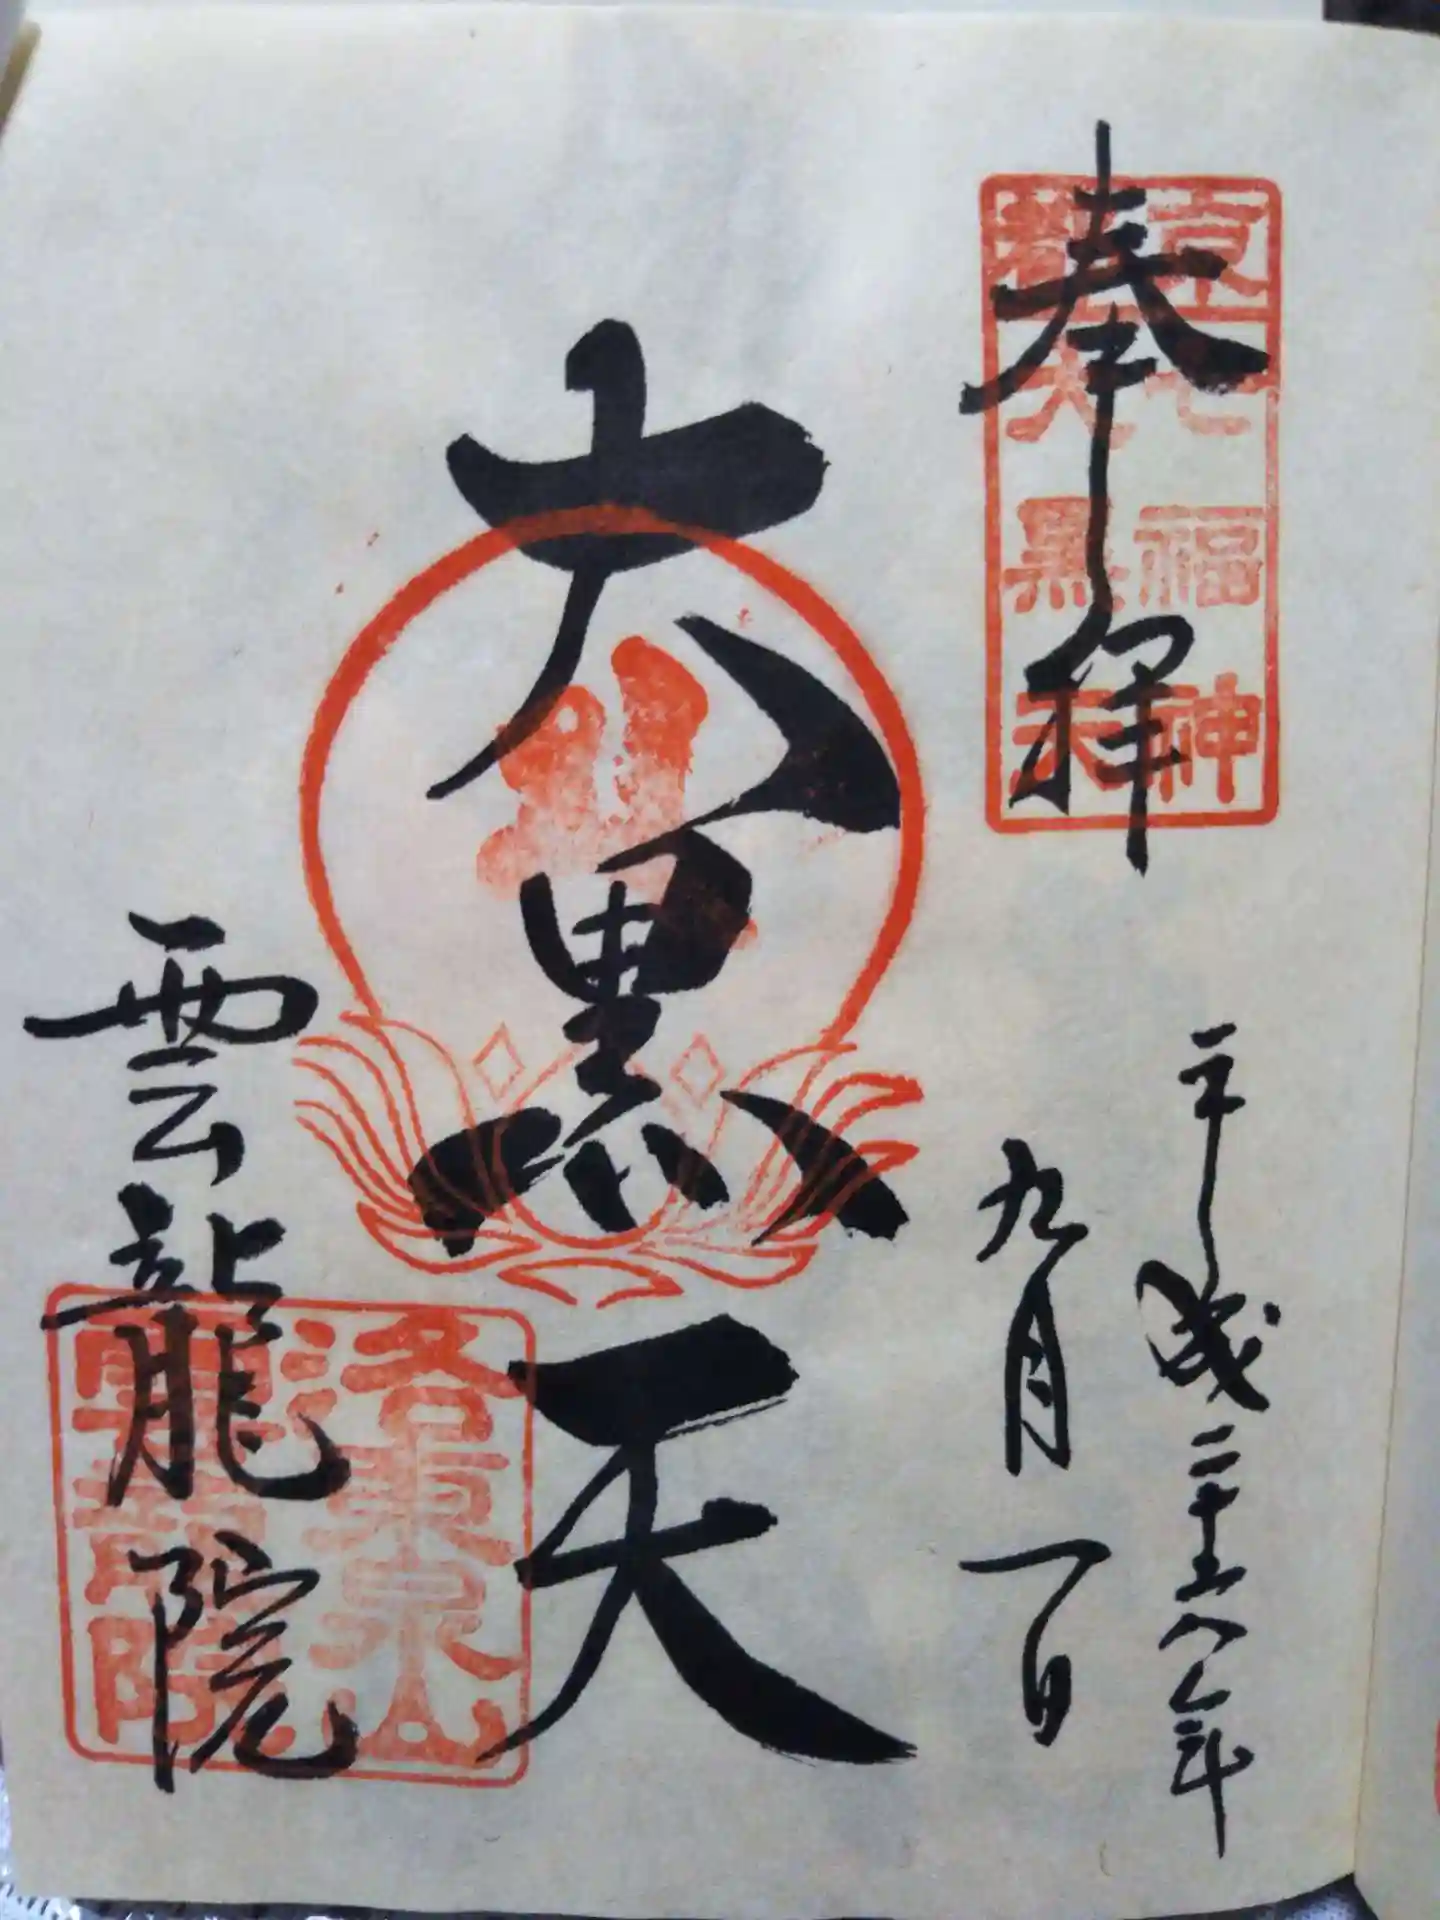 奉拝
京七福神
大黒天
平成二十八年
九月一日
大黒天
雲龍院
洛東泉山
雲龍院